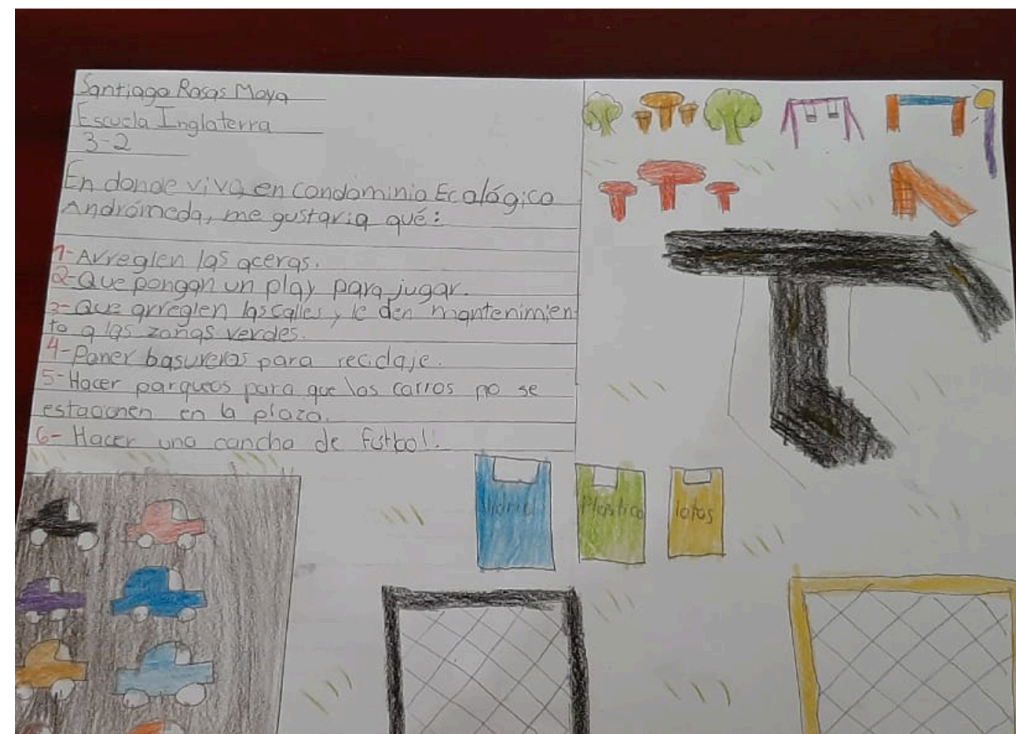 Santiago Rosas Moya
Escuela Inglaterra
3-2
En donde vivo, en condominio Ecológico
Andrómeda, me gustaria qué:
1-Arreglen las aceras.
2-Que pongan un play para jugar.
3-Que arreglen las calles y le den mantenimien
to a las zonas verdes.
4-Poner basureros para reciclaje.
5-Hacer parqueos para que los carros no se
estacionen en la plaza.
6-Hacer una cancha de futbol.
Vidrio
Plástico
latas